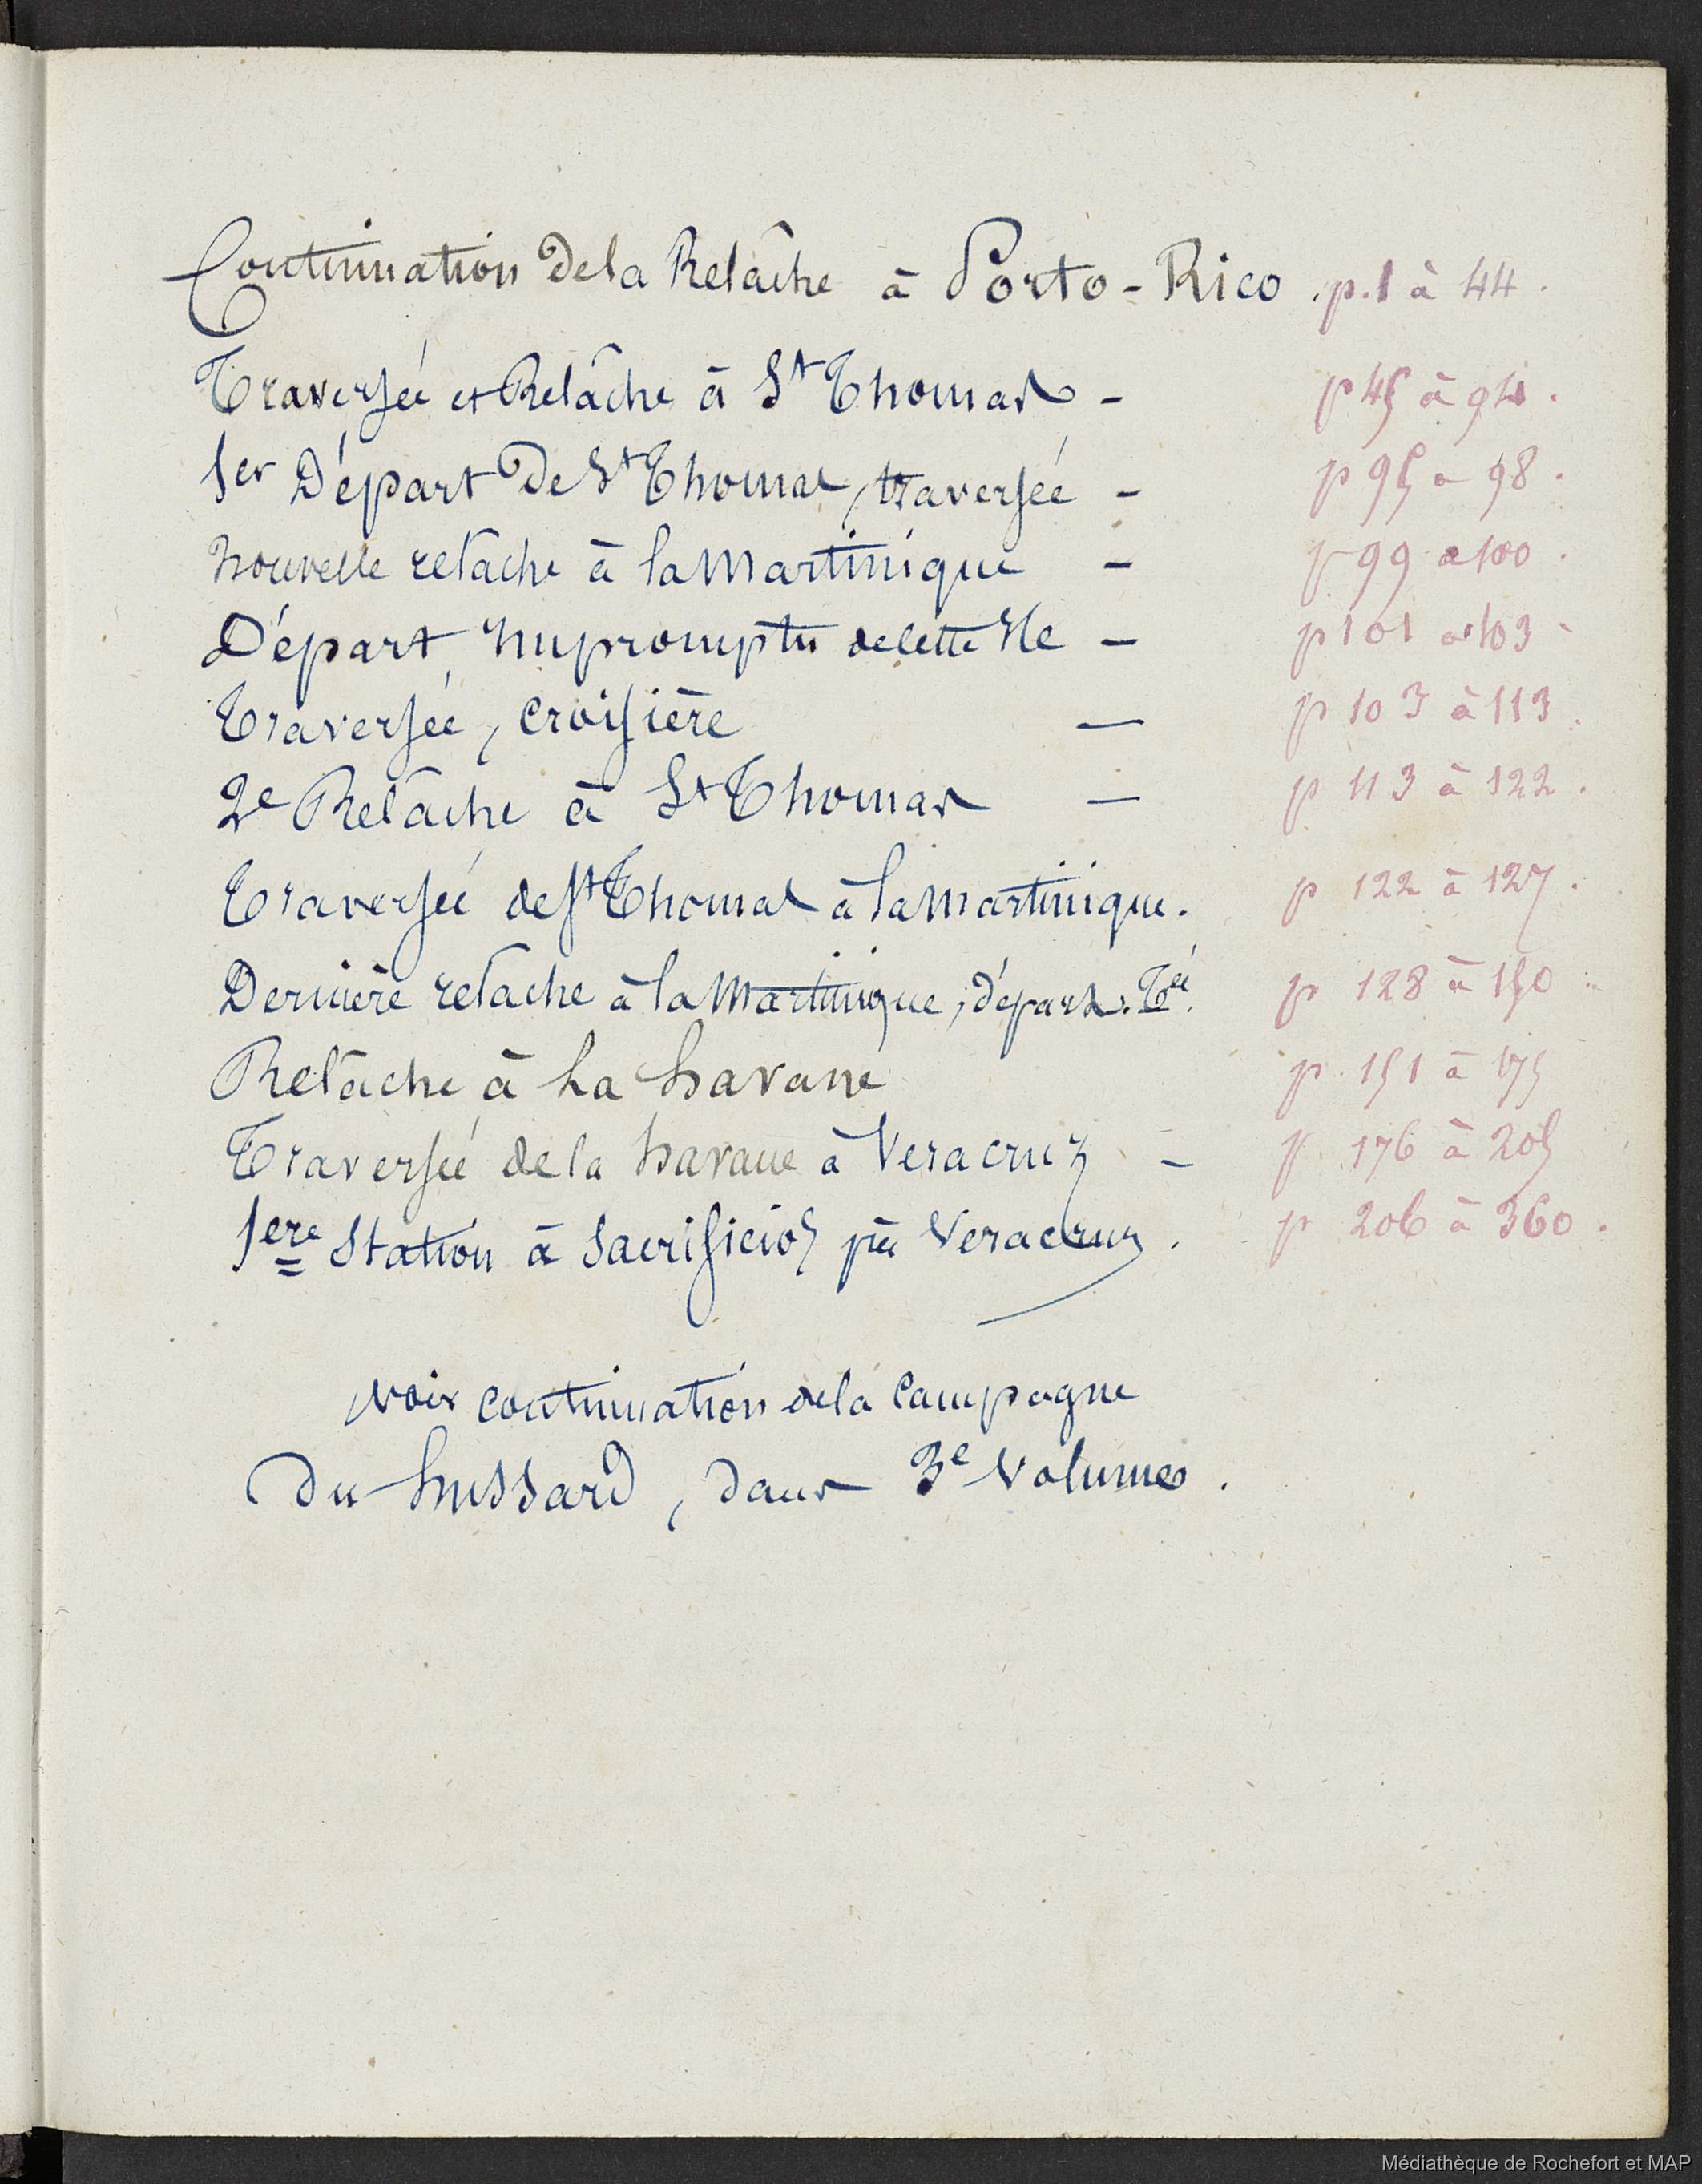 Continuation de la Relâche à Porto-Rico . p. 1 à 44 .
Traversée et Relâche à St Thomas - p 45 à 94 .
1er Départ de St Thomas, traversée - p 95 à 98 .
Nouvelle relache à la Martinique - p 99 à 100 .
Départ impromptu de cette Ile - p 101 à 103 -
Traversée, croisière - p 103 à 113 .
2e Relâche à St Thomas - p 113 à 122 .
Traversée de St Thomas à la Martinique. p 122 à 127 .
Dernière relache à la Martinique, départ. Tée. p 128 à 150 .
Relâche à La havane p. 151 à 175
Traversée de la havane à Veracruz - p. 176 à 205
1ere Station à Sacrificios près Veracruz . p 206 à 360 .
Voir continuation de la campagne
du hussard, dans 3e Volume .
Médiathèque de Rochefort et MAP